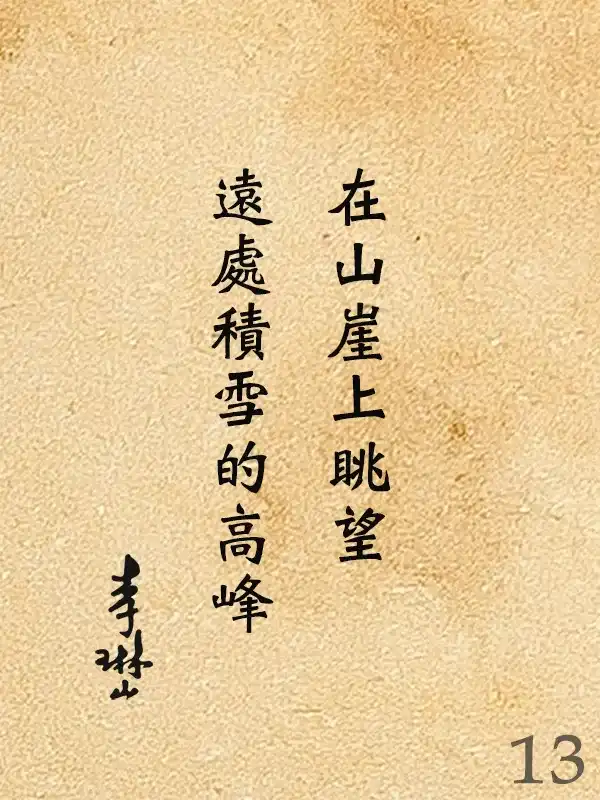 在山崖上眺望
遠處積雪的高峰
李琳山
13